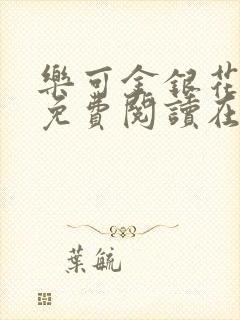 樂可金銀花
免費閱讀在
葉毓